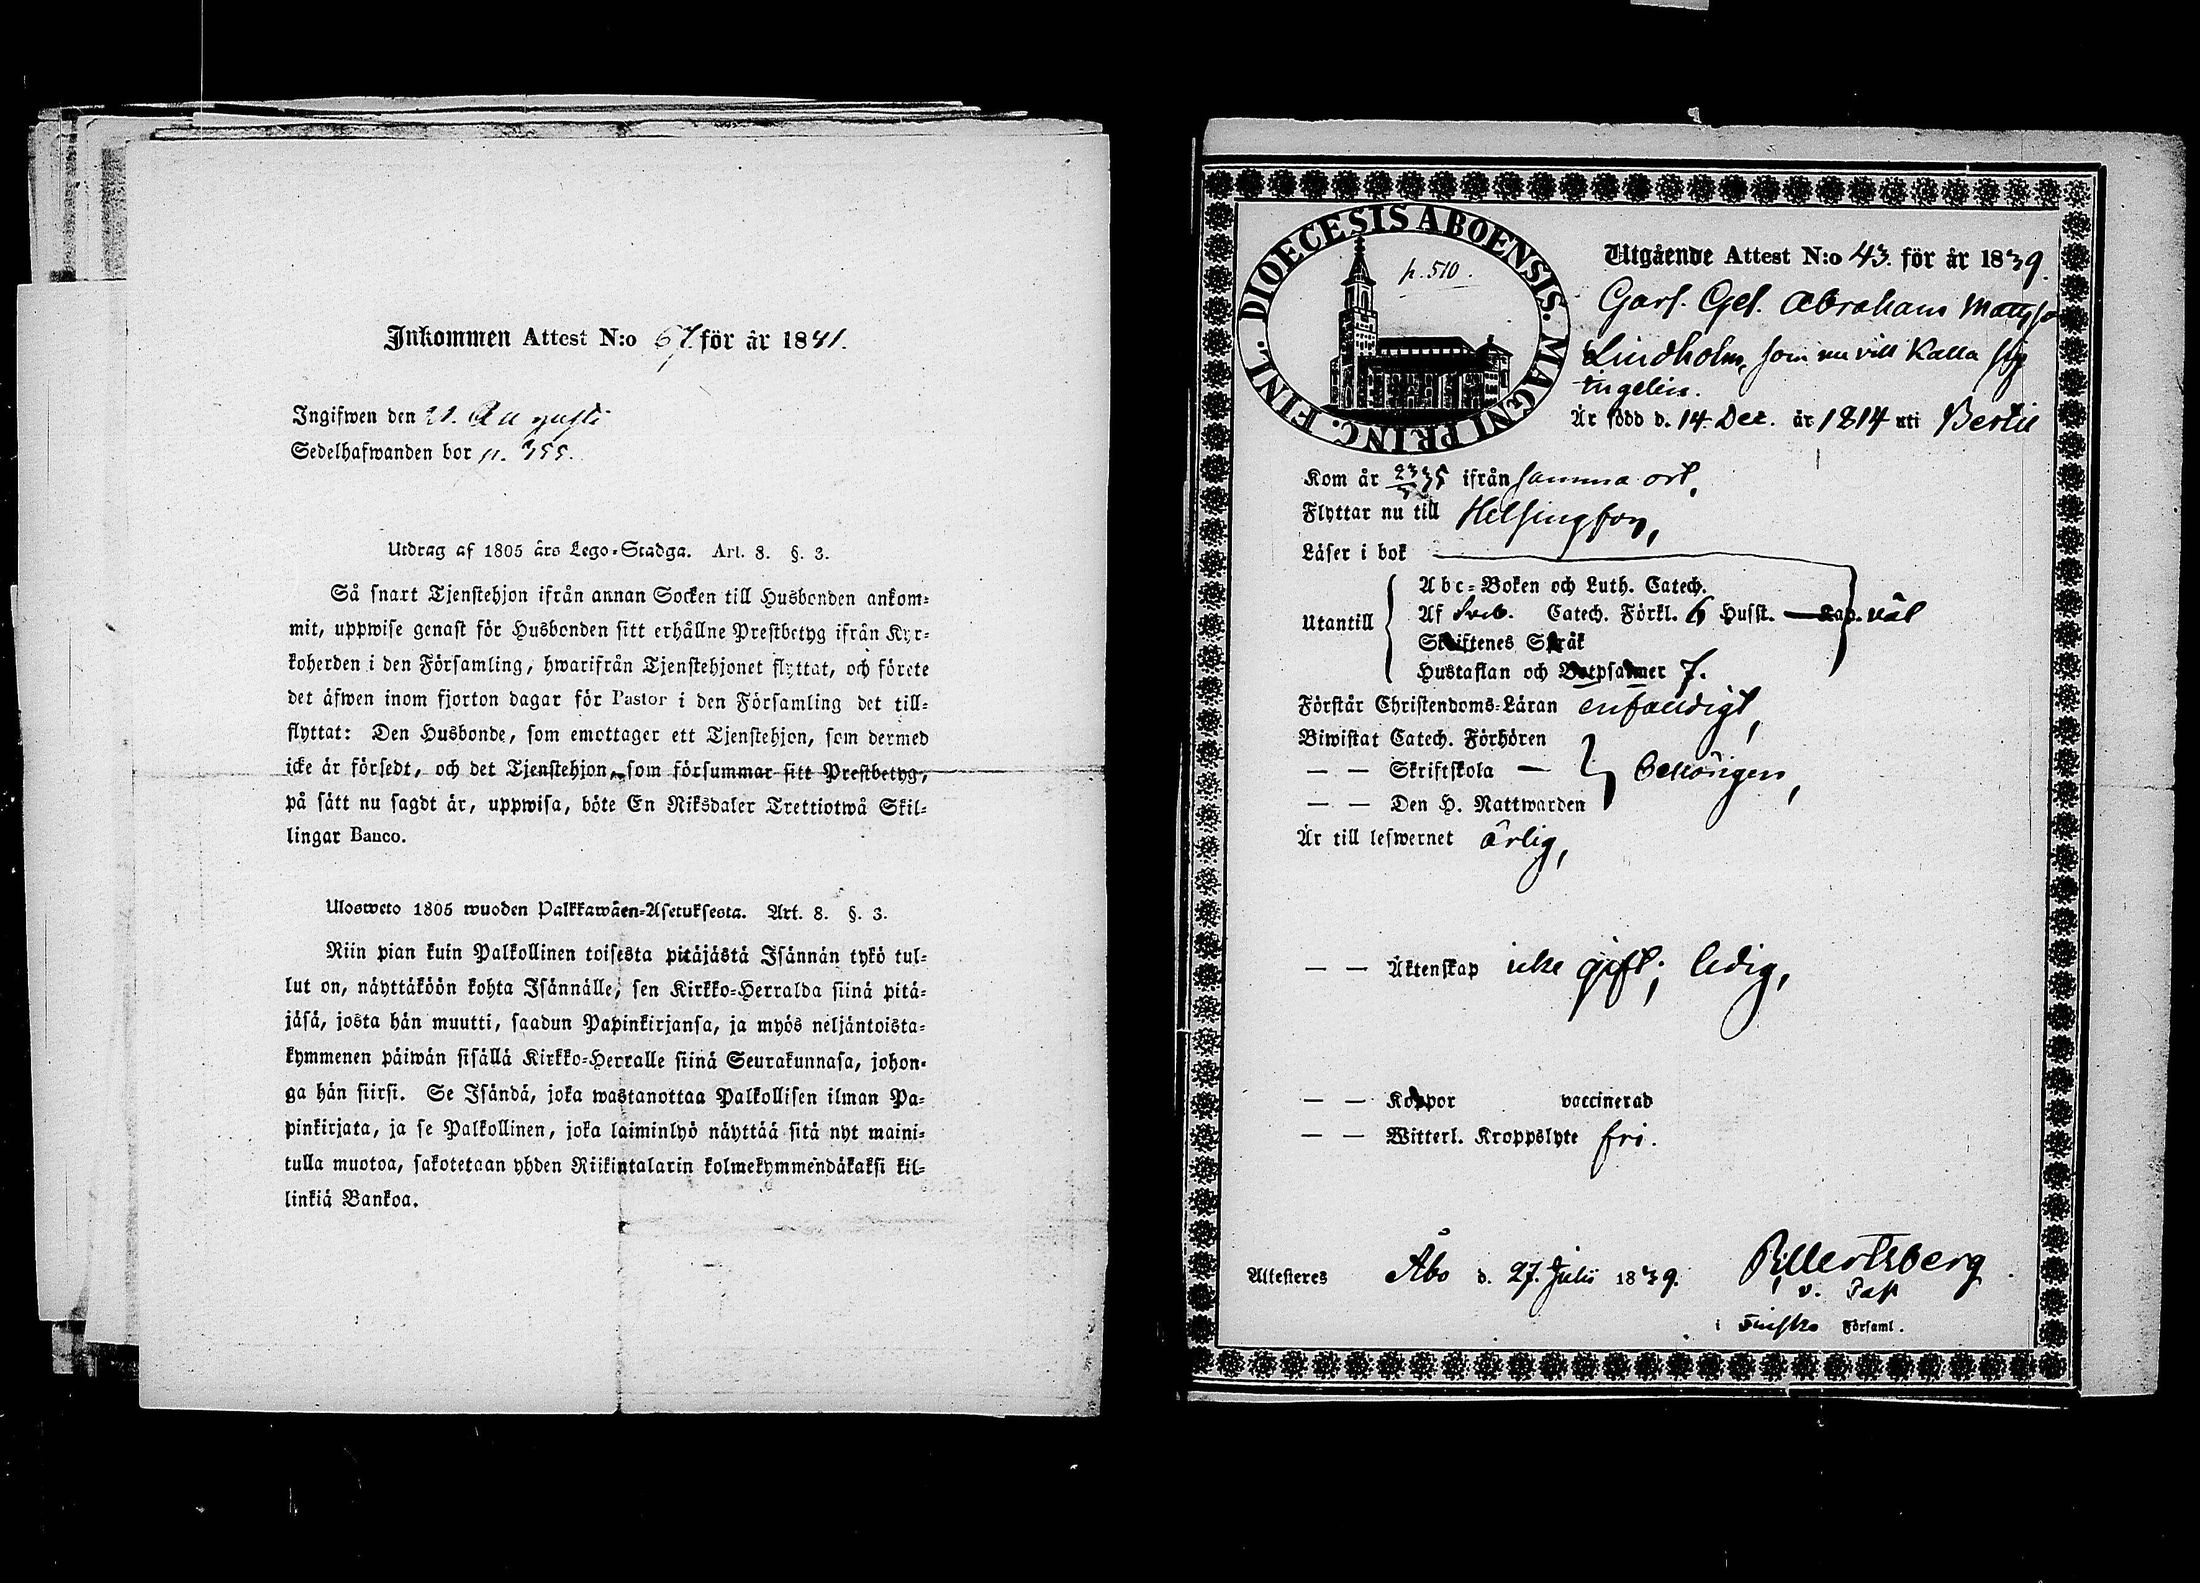 Inkommen Attest N:o 67. för år 1841.
Ingifwen den 21. Augusti
Sedelhafwanden bor p. 355.
Utdrag af 1805 års Lego-Stadga. Art. 8. §. 3.
Så snart Tjenstehjon ifrån annan Socken till Husbonden ankom-
mit, uppwise genast för Husbonden sitt erhållne Prestbetyg ifrån Kyr-
koherden i den Församling, hwarifrån Tjenstehjonet flyttat, och förete
det äfwen inom fjorton dagar för Pastor i den Församling det till-
flyttat: Den Husbonde, som emottager ett Tjenstehjon, som dermed
icke är försedt, och det Tjenstehjon, som försummar sitt Prestbetyg,
på sätt nu sagdt är, uppwisa, böte En Riksdaler Trettiotwå Skil-
lingar Banco.
Ulosweto 1805 wuoden Palkkawäen-Asetuksesta. Art. 8. §. 3.
Niin pian kuin Palkollinen toisesta pitäjästä Isännän tykö tul-
lut on, näyttäköön kohta Isännälle, sen Kirkko-Herralda siinä pitä-
jäsä, josta hän muutti, saadun Papinkirjansa, ja myös neljäntoista-
kymmenen päiwän sisällä Kirkko-Herralle siinä Seurakunnasa, johon-
ga hän siirsi. Se Isändä, joka wastanottaa Palkollisen ilman Pa-
pinkirjata, ja se Palkollinen, joka laiminlyö näyttää sitä nyt maini-
tulla muotoa, sakotetaan yhden Riikintalarin kolmekymmendäkaksi kil-
linkiä Bankoa.
DIOECESIS ABOENSIS. MAGNI PRINC. FINL.
p. 510.
Utgående Attest N:o 43. för år 1839.
Garf. Ges. Abraham Matts
Lindholm, som nu vill kalla sig
Engelin.
Är född d. 14. Dec. år 1814 uti
Kom år 35 ifrån samma ort,
Flyttar nu till Helsingfors,
Läser i bok
Utantill
Abc-Boken och Luth. Catech.
Af Catech. Förkl. 6 Husst. — Kap. väl
Skriftenes Språk
Hustaflan och Botpsalmer 7.
Förstår Christendoms-Läran enfaldigt,
Biwistat Catech. Förhören
— — Skriftskola — behörigen,
— — Den H. Nattwarden
Är till lefwernet ärlig,
— — Äktenskap icke gift; ledig,
— — Koppor vaccinerad
— — Witterl. Kroppslyte fri.
Attesteres Åbo d. 27. Julii 1839.
v. Past
i Finska Församl.